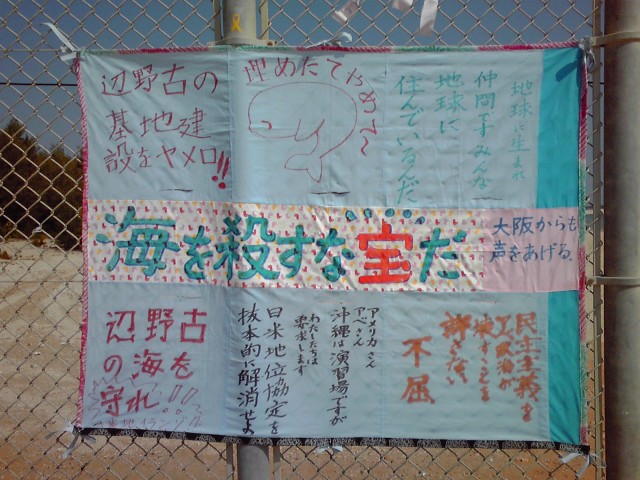 辺野古の
基地建
設をヤメロ!!
埋めたてやめて〜
地球に生まれ
仲間ですみんな
地球に
住んでいるんだ
海を殺すな宝だ
大阪からも
声をあげる.
辺野古
の海を
守れ!!!
アメリカさん
アベさん
沖縄は演習場ですが
わたしたちは
要求します
日米地位協定を
抜本的に解消せよ
民主主義を
政治が
壊すことを
許さない
不屈